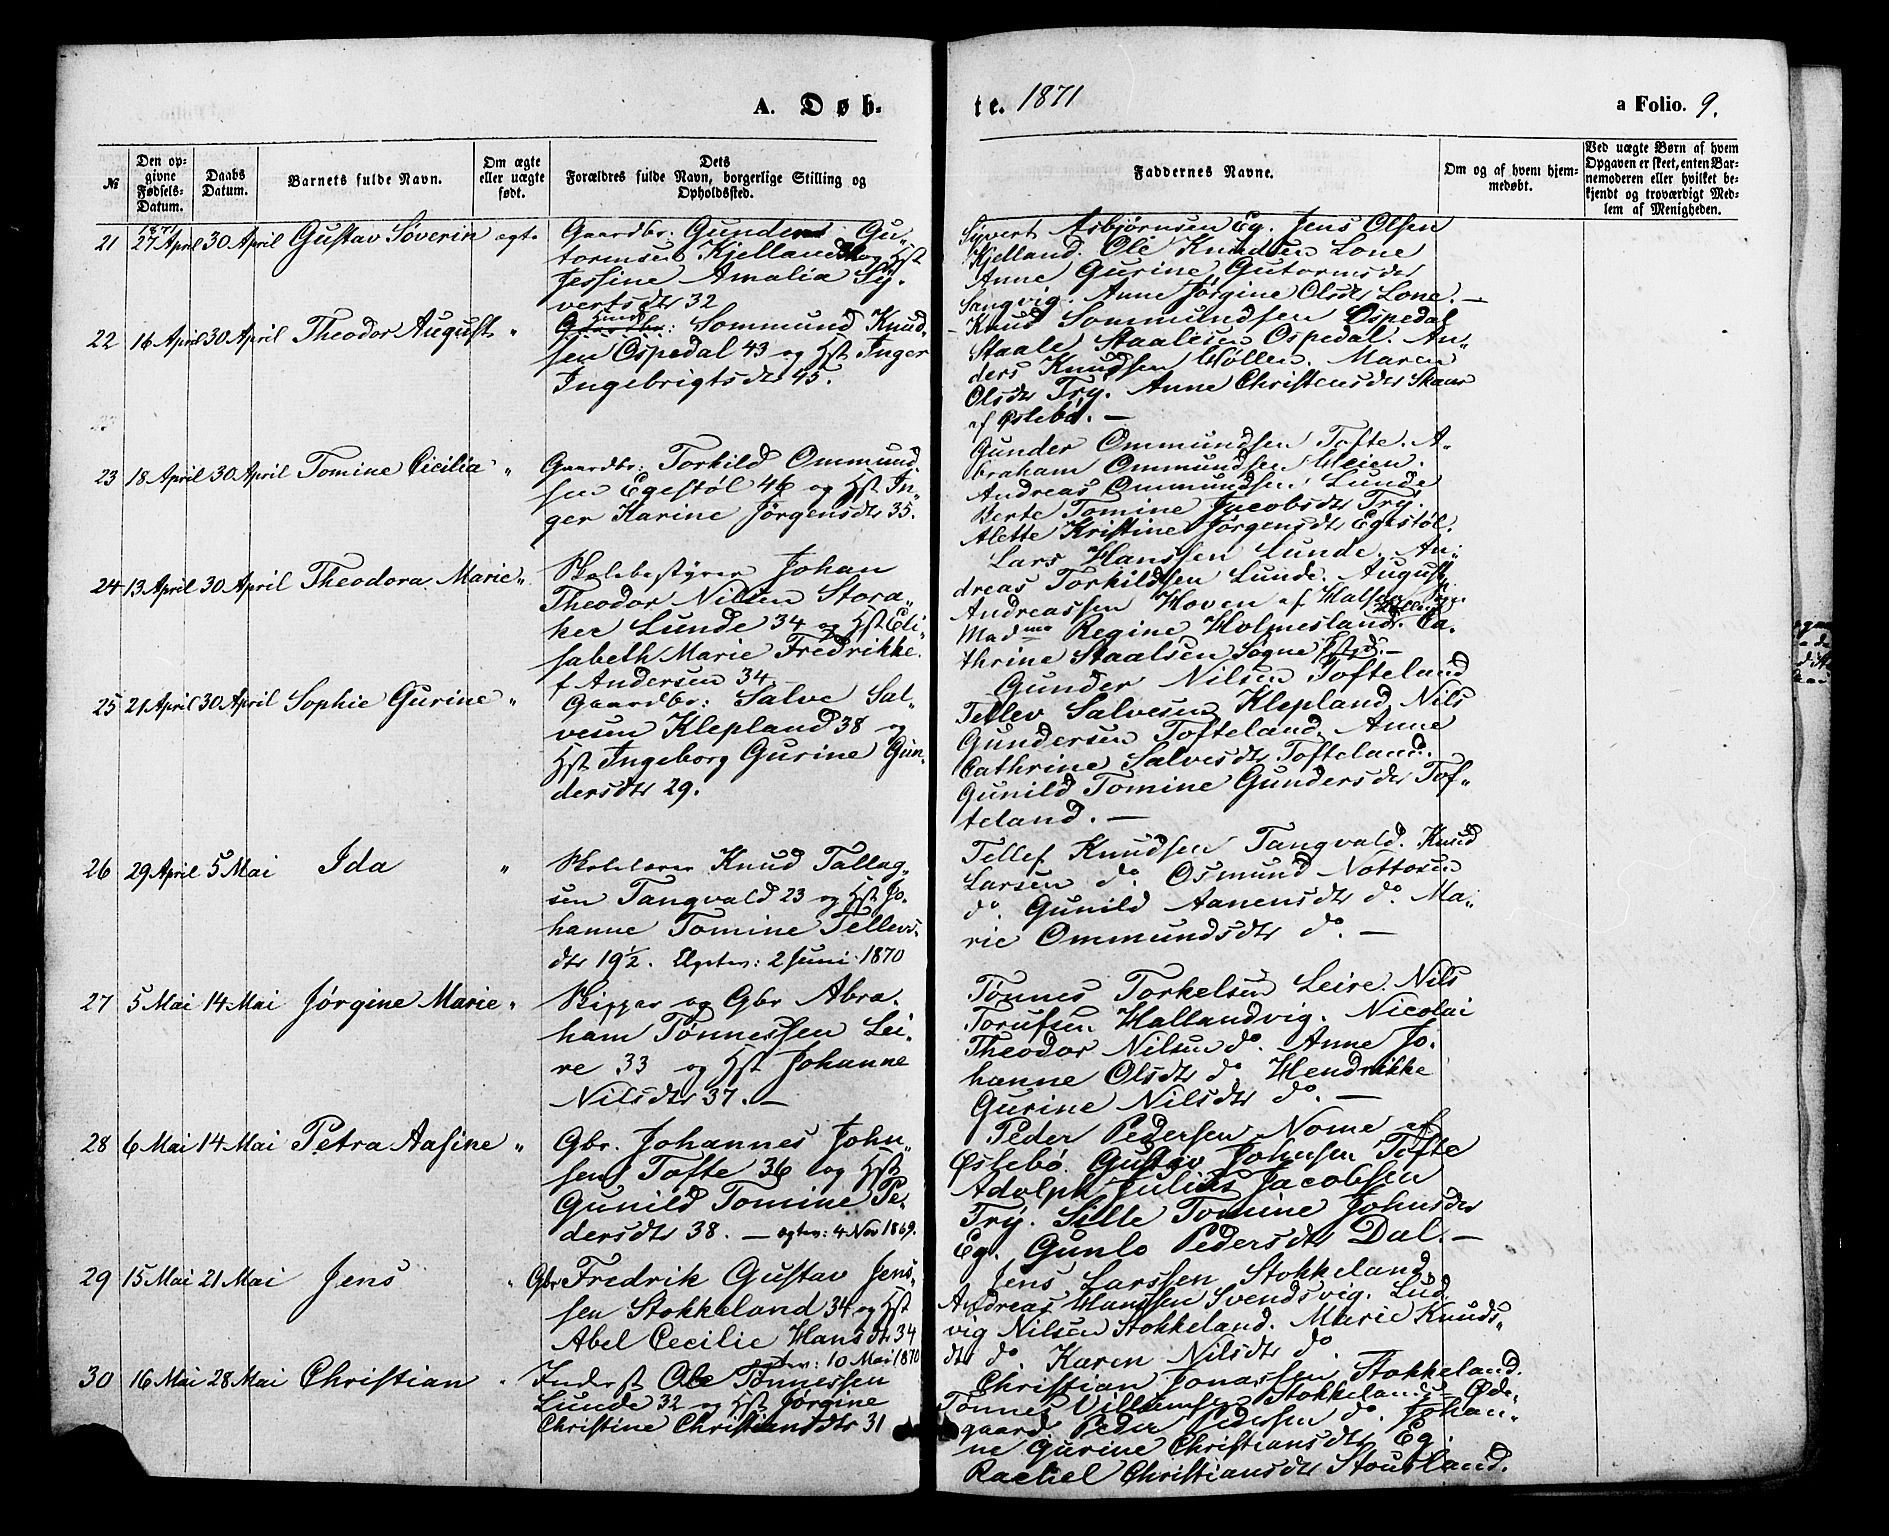 A. Døb-
te. 1871
a Folio. 9.
№
Den op-
givne
Fødsels-
Datum.
Daabs
Datum.
Barnets fulde Navn.
Om ægte
eller uægte
født.
Dets
Forældres fulde Navn, borgerlige Stilling og
Opholdssted.
Faddernes Navne.
Om og af hvem hjem-
medøbt.
Ved uægte Børn af hvem
Opgaven er skeet, enten Bar-
nemoderen eller hvilket be-
kjendt og troværdigt Med-
lem af Menigheden.
1871
21 27 April 30 April Gustav Söverin ægte
Gaardbr. Gunder Gu-
tormsen Kjelland og Hst
Jessine Amalia Sy-
vertsdtr 32
Syvert Asbjørnsen Eg. Jens Olsen
Kjelland. Ole Knudsen Lone
Anne Gurine Gutormsdtr
Sangvig. Anne Jørgine Olsdtr Lone. —
22 16 April 30 April Theodor August "
Gaardbr: Sommund Knud-
sen Ospedal 43 og Hst Inger
Ingebrigtsdtr 45.
Knud Sommundsen Ospedal
Staale Staalesen Ospedal. An-
ders Knudsen Møllen. Maren
Olsdtr Try. Anne Christensdtr Skaar
af Øslebø. —
23 18 April 30 April Tomine Cicilia "
Gaardbr: Torkild Ommund-
sen Egestøl 46 og Hst In-
ger Karine Jørgensdtr 35.
Gunder Ommundsen Tofte. A-
braham Ommundsen Heien.
Andreas Ommundsen Lunde
Berte Tomine Jacobsdtr Try.
Alette Kristine Jørgensdtr Egestøl.
24 13 April 30 April Theodora Marie "
Skolebestyrer Johan
Theodor Nilsen Stora-
ker Lunde 34 og Hst Eli-
sabeth Marie Fredrikke
f Andersen 34
Lars Hanssen Lunde. An-
dreas Torkildsen Lunde. August
Andreassen Hoven af Halse
Madme Regine Holmesland. Ca-
thrine Staalsen Søgne Pstgd. —
25 21 April 30 April Sophie Gurine "
Gaardbr: Salve Sal-
vesen Klepland 38 og
Hst Ingeborg Gurine Gun-
dersdtr 29.
Gunder Nilsen Tofteland
Tellev Salvesen Klepland Nils
Gundersen Tofteland. Anne
Cathrine Salvesdtr Tofteland.
Gunild Tomine Gundersdtr Tof-
teland. —
26 29 April 5 Mai Ida "
Skolelærer Knud Tallag-
sen Tangvald 23 og Hst Jo-
hanne Tomine Tellevs-
dtr 19½. Egtev: 2 Juni 1870
Tellef Knudsen Tangvald. Knud
Larsen do. Osmund Nottosen
do. Gunild Aanensdtr do. Ma-
rie Ommundsdtr do. —
27 5 Mai 14 Mai Jørgine Marie "
Skipper og Gbr Abra-
ham Tønnessen Lei-
re 33 og Hst Johanne
Nilsdtr 37. —
Tønnes Torkelsen Leire. Nils
Torufsen Hallandvig. Nicolai
Theodor Nilsen do. Anne Jo-
hanne Olsdtr do Hendrikke
Gurine Nilsdtr do. —
28 6 Mai 14 Mai Petra Aasine "
Gbr. Johannes John-
sen Tofte 36 og Hst
Gunild Tomine Pe-
dersdtr 38. — egtev: 4 Nov 1869.
Peder Pedersen Nome af
Øslebø. Gustav Johnsen Tofte
Adolph Julius Jacobsen
Try. Sille Tomine Johnsdtr
Eg. Gunlo Pedersdtr Dal. —
29 15 Mai 21 Mai Jens "
Gbr Fredrik Gustav Jens-
sen Stokkeland 34 og Hst
Abel Cecilie Hansdtr 34
egtev: 10 Mai 1870
Jens Larssen Stokkeland.
Andreas Hanssen Svendsvig. Lud-
vig Nilsen Stokkeland. Marie Knuds-
dtr do. Karen Nilsdtr do
30 16 Mai 28 Mai Christian "
Inderst Ole Tønnessen
Lunde 32 og Hst Jørgine
Christine Christiansdtr 31
Christian Jonassen Stokkeland.
Tønnes Villumsen Stokkeland Øde-
gaard. Peder Pedersen do. Johan-
ne Gurine Christiansdtr Eg.
Rachel Christiansdtr Stousland.